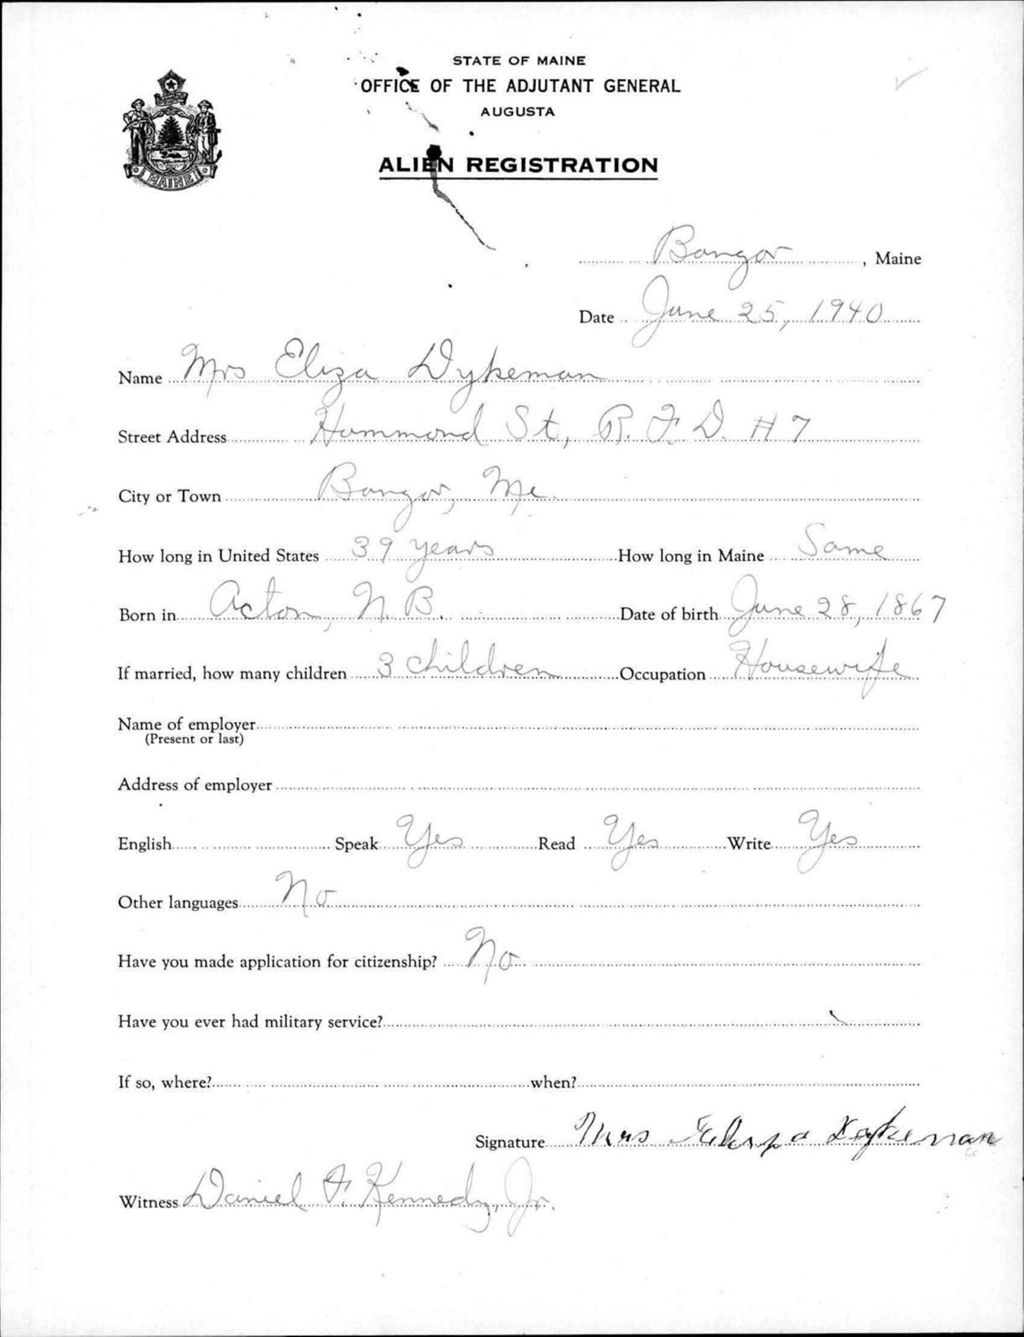 STATE OF MAINE
OFFICE OF THE ADJUTANT GENERAL
AUGUSTA
ALIEN REGISTRATION
MAINE
Bangor, Maine
Date June 25, 1940
Name Mrs Eliza Dykeman
Street Address Hammond St, R. F. D. #7
City or Town Bangor, Me.
How long in United States 39 years How long in Maine Same
Born in Acton, N. B. Date of birth June 28, 1867
If married, how many children 3 children Occupation Housewife
Name of employer
(Present or last)
Address of employer
English Speak Yes Read Yes Write Yes
Other languages No
Have you made application for citizenship? No
Have you ever had military service?
If so, where? when?
Signature Mrs Dykeman
Witness Daniel F. Kennedy, Jr.